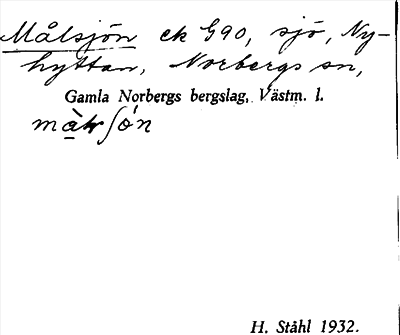 Målsjön ek G90, sjö, Ny-
hyttan, Norbergs sn,
Gamla Norbergs bergslag, Västm. l.
H. Ståhl 1932.